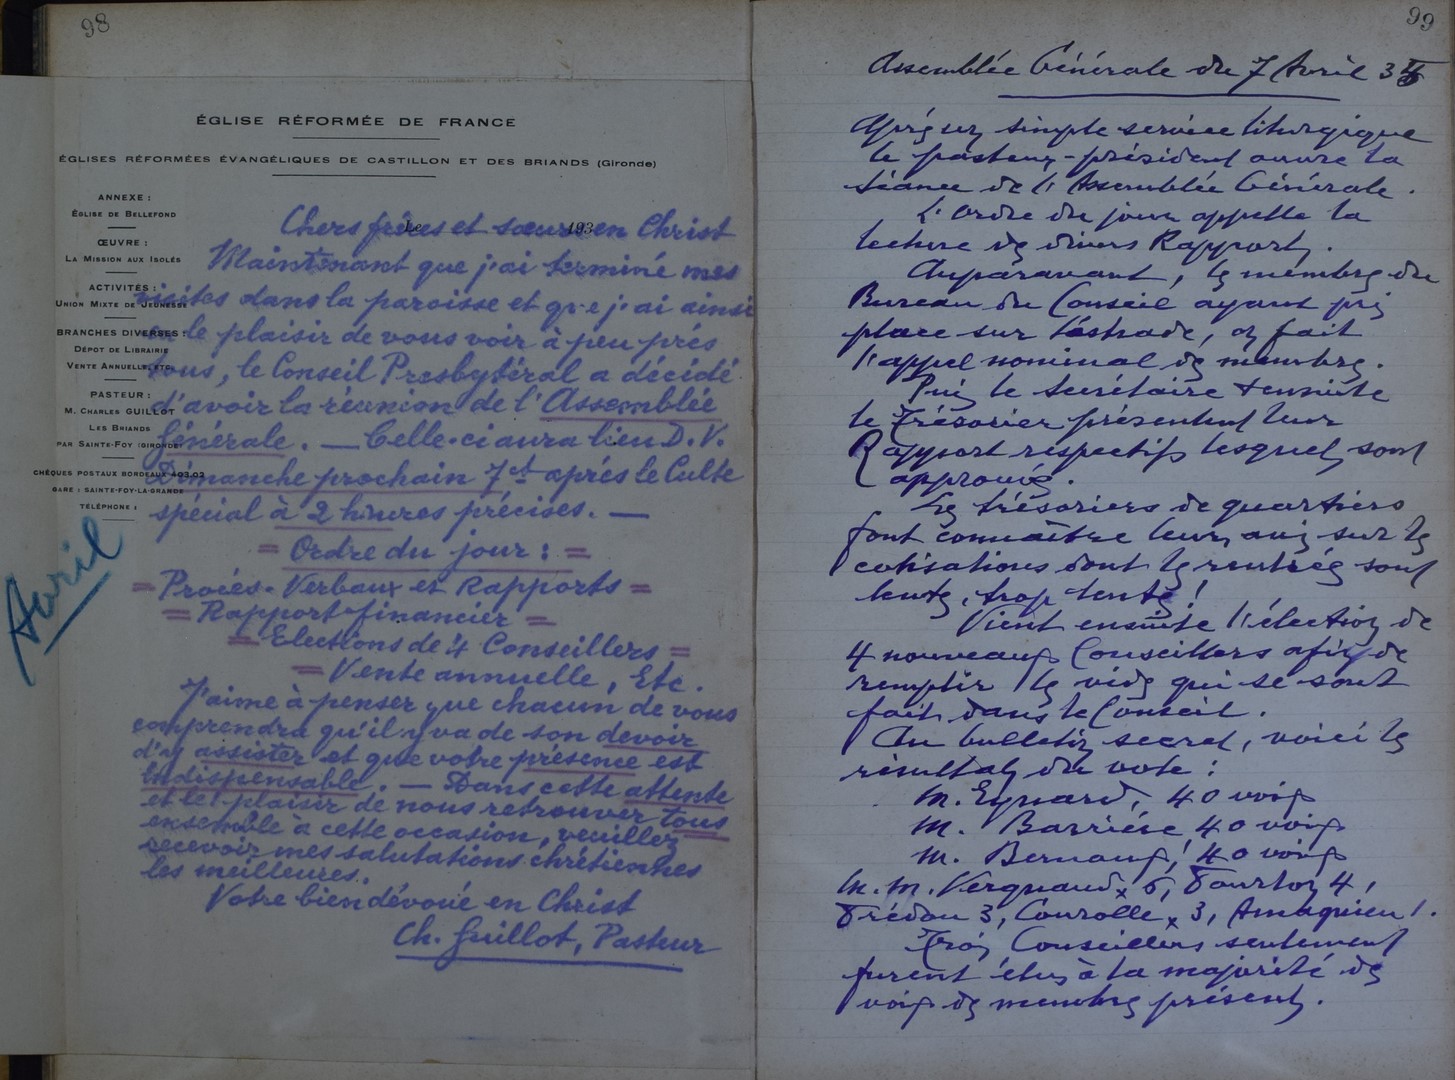 98
ÉGLISE RÉFORMÉE DE FRANCE
ÉGLISES RÉFORMÉES ÉVANGÉLIQUES DE CASTILLON ET DES BRIANDS (Gironde)
ANNEXE :
ÉGLISE DE BELLEFOND
ŒUVRE :
LA MISSION AUX ISOLÉS
ACTIVITÉS :
UNION MIXTE DE JEUNESSE
BRANCHES DIVERSES :
DÉPOT DE LIBRAIRIE
VENTE ANNUELLE, ETC.
PASTEUR :
M. CHARLES GUILLOT
LES BRIANDS
PAR SAINTE-FOY (GIRONDE)
CHÈQUES POSTAUX BORDEAUX 403.02
GARE : SAINTE-FOY-LA-GRANDE
TÉLÉPHONE :
Avril
Le 193
Chers frères et sœurs en Christ
Maintenant que j'ai terminé mes
visites dans la paroisse et que j'ai ainsi
eu le plaisir de vous voir à peu près
tous, le Conseil Presbytéral a décidé
d'avoir la réunion de l'Assemblée
Générale. — Celle-ci aura lieu D.V.
Dimanche prochain 7 ct après le Culte
spécial à 2 heures précises. —
= Ordre du jour : =
= Procès-Verbaux et Rapports =
= Rapport financier =
= Elections de 4 Conseillers =
= Vente annuelle, Etc.
J'aime à penser que chacun de vous
comprendra qu'il y va de son devoir
d'y assister et que votre présence est
indispensable. — Dans cette attente
et le plaisir de nous retrouver tous
ensemble à cette occasion, veuillez
recevoir mes salutations chrétiennes
les meilleures.
Votre bien dévoué en Christ
Ch. Guillot, Pasteur
99
Assemblée Générale du 7 Avril 35
Après un simple service liturgique
le pasteur-président ouvre la
séance de l'Assemblée Générale.
L'ordre du jour appelle la
lecture des divers Rapports.
Auparavant, les membres du
Bureau du Conseil ayant pris
place sur l'estrade, on fait
l'appel nominal des membres.
Puis le Secrétaire & ensuite
le Trésorier présentent leur
Rapport respectifs lesquels sont
approuvés.
Les trésoriers de quartiers
font connaître leurs avis sur les
cotisations dont les rentrées sont
lentes, trop lentes !
Vient ensuite l'élection de
4 nouveaux Conseillers afin de
remplir les vides qui se sont
faits dans le Conseil.
Au bulletin secret, voici les
résultats du vote :
M. Eynard, 40 voix
M. Barrière 40 voix
M. Bernaux, 40 voix
M.M. Vergnaud x 6, Tourton 4,
Trédou 3, Courolle x 3, Amaquieu 1.
Trois Conseillers seulement
furent élus à la majorité des
voix des membres présents.